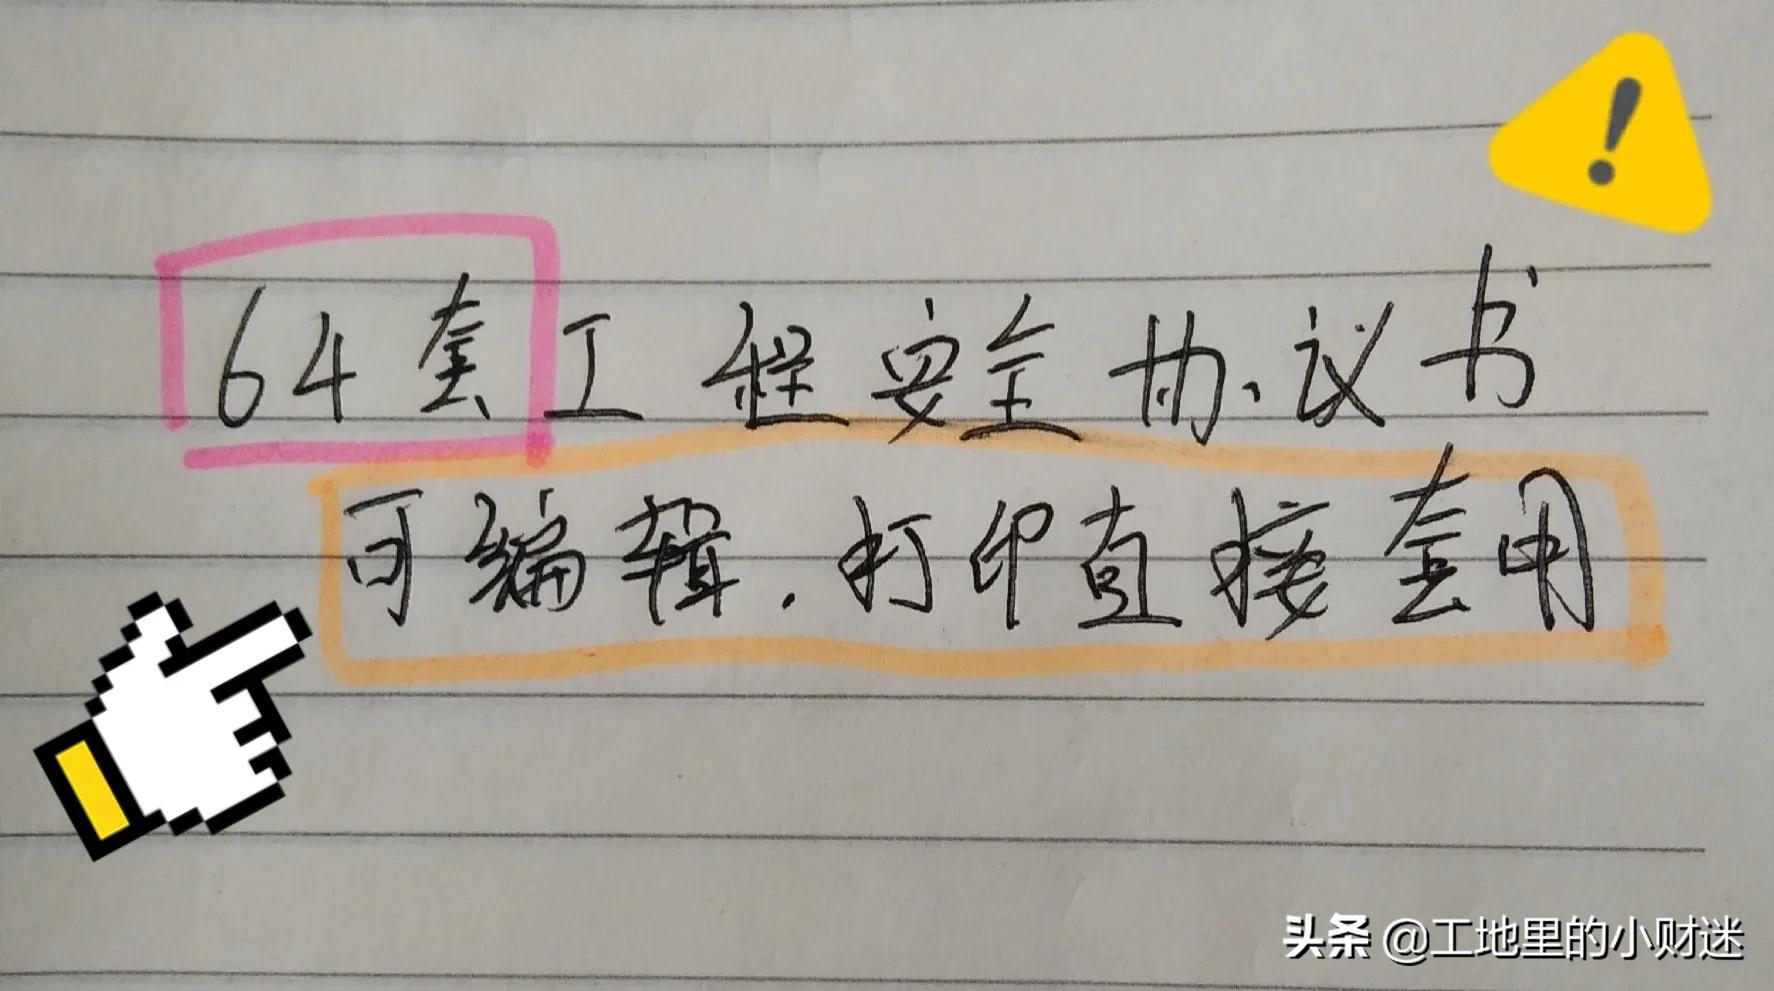 64套工程安全协议书
可编辑.打印直接套用
头条 @工地里的小财迷